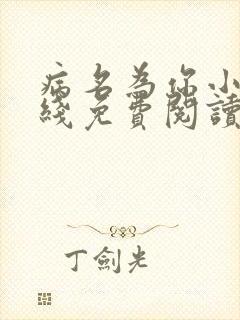 病名為你小
綫免費閱讀
丁劍光